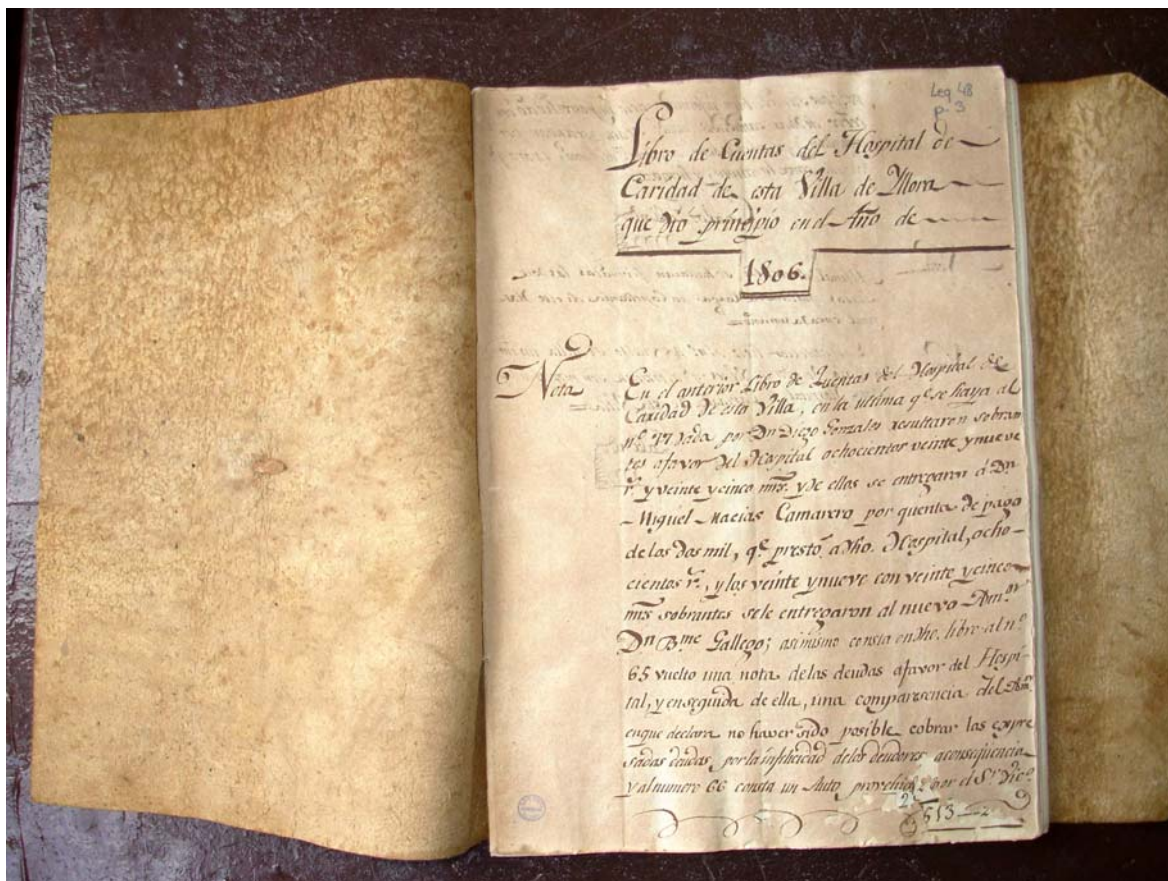 Leg 48
p. 3
Libro de Cuentas del Hospital de
Caridad de esta Villa de Mora
que dio principio en el Año de
1806.
Nota
En el anterior Libro de Quentas del Hospital de
Caridad de esta Villa, en la ultima qe. se haya al
nº. 47 dada por Dn Diego Gonzales resultaron sobran
tes afavor del Hospital ochocientos veinte y nueve
rs. y veinte y cinco mrs. y de ellos se entregaron á Dn
Miguel Macias Camarero por quenta de pago
de los dos mil, qe. prestó a dho. Hospital, ocho-
cientos rs., y los veinte y nueve con veinte y cinco
mrs sobrantes se le entregaron al nuevo Amor
Dn Bme Gallego; asimismo consta en dho. libro al nº
65 vuelto una nota de las deudas afavor del Hospi-
tal, y enseguida de ella, una comparesencia del Amor
enque declara no haver sido posible cobrar las espre
sadas deudas, por la infelicidad de los deudores aconsequencia
y al numero 66 consta un Auto, por el Sr.
513